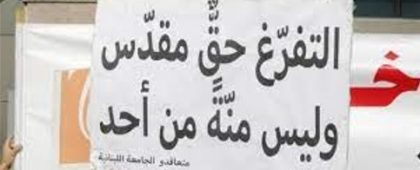 التفرّغ حقٌّ مقدّس
وليس منّةً من أحد
متعاقدو الجامعة اللبنانية